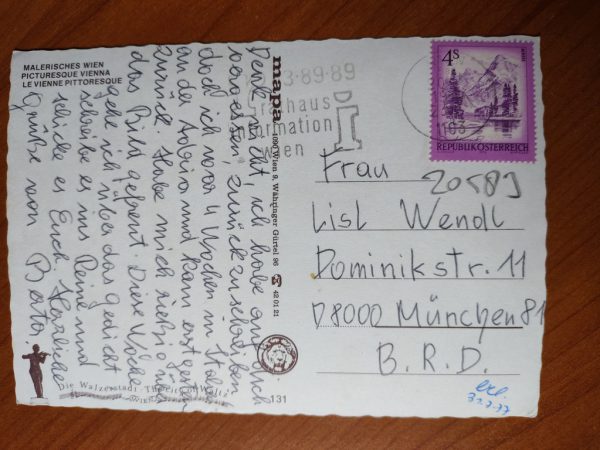 MALERISCHES WIEN
PICTURESQUE VIENNA
LE VIENNE PITTORESQUE
Denkt nicht, ich habe auf Euch
vergessen zurückzuschreiben
doch ich war 4 Wochen in
an der Adria und kam erst gestern
zurück. Habe mich riesig
das Bild gefreut. Diese Woche
gehe ich über das Gedicht
schreibe es ins Reine und
schicke es Euch. Herzliche
Grüße von Berta.
mapa 1090 Wien 9, Währinger Gürtel 96 ☎ 42 01 21
3-89-89
information
wien
4S
REPUBLIK ÖSTERREICH
1103
Frau
20589
Lisl Wendl
Dominikstr. 11
D8000 München 81
B.R.D.
Die Walzerstadt
131